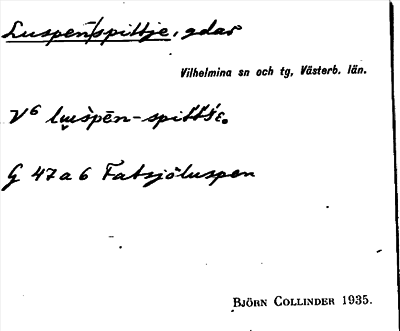 Luspen/spittje, gdar
Vilhelmina sn och tg, Västerb. län.
V6 -spit
G 47 a 6 Fatsjöluspen
BJÖRN COLLINDER 1935.